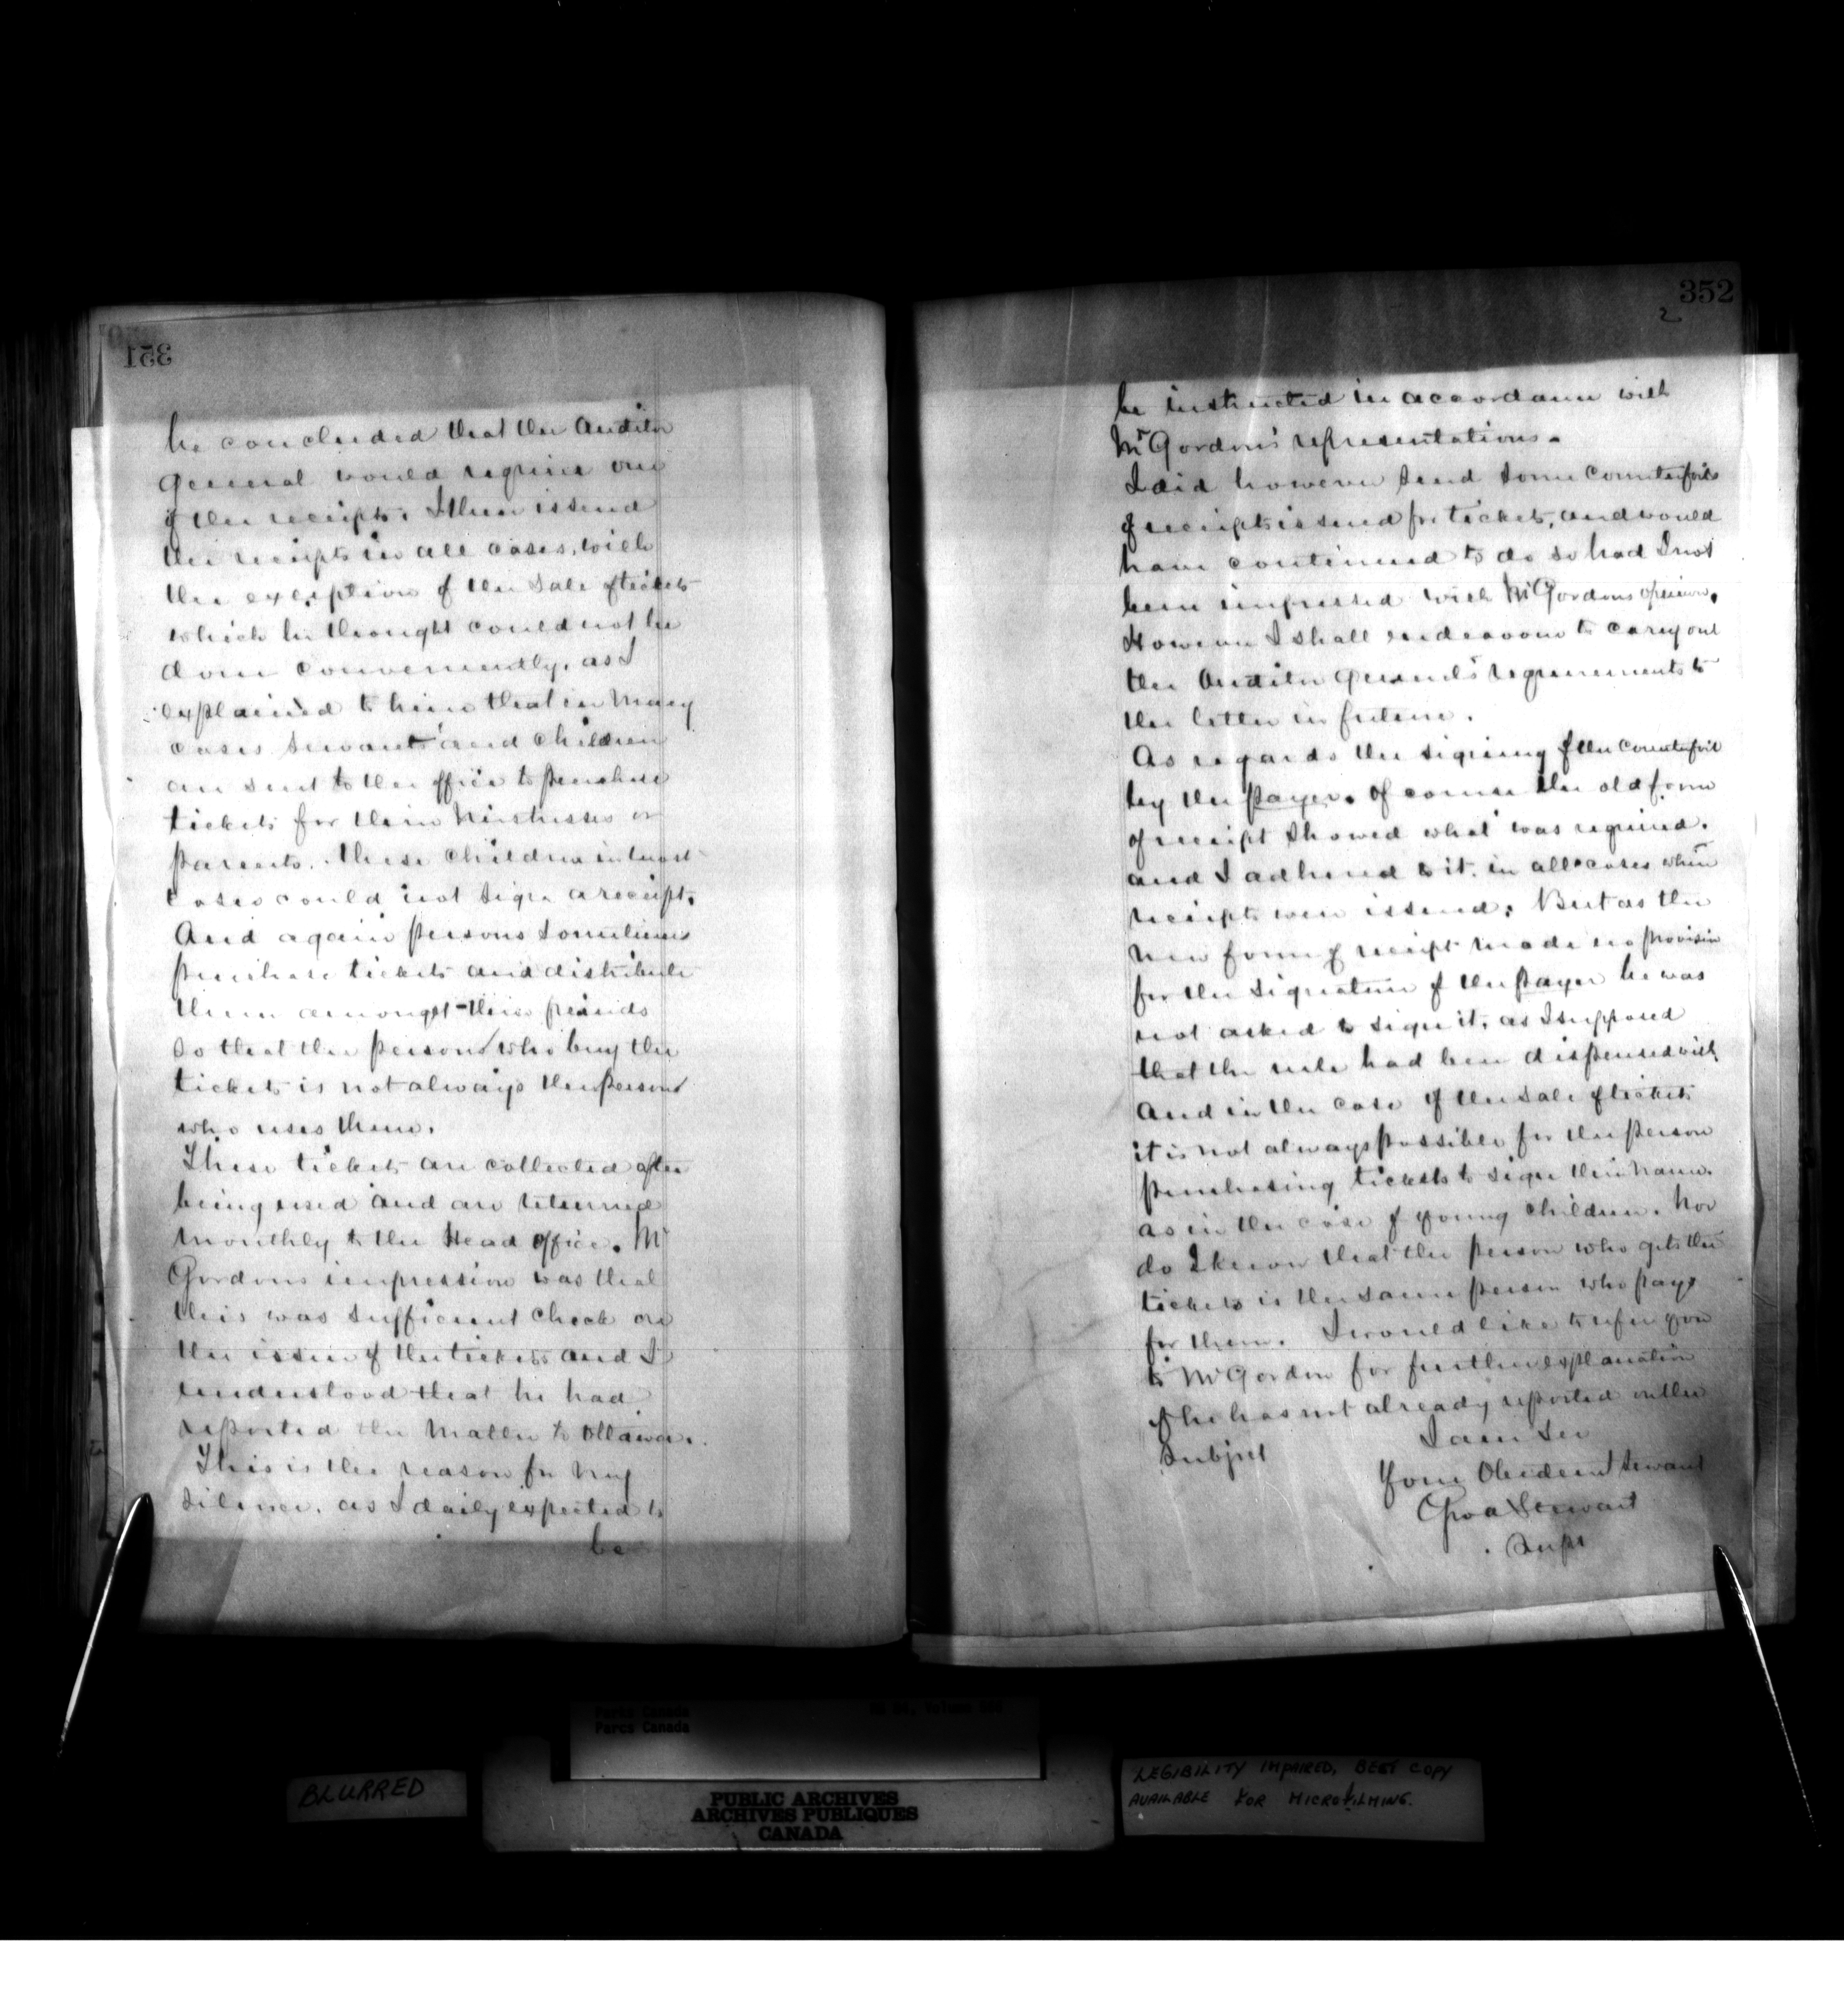 351
he concluded that the Auditor
General would require one
of the receipts. I then issued
the receipts in all cases, with
the exception of the sale of tickets
which he thought could not be
done conveniently, as I
explained to him that in many
cases servants and children
are sent to the office to purchase
tickets for their Mistresses or
parents. These children in most
cases could not sign a receipt.
And again persons sometimes
purchase tickets and distribute
them amongst their friends
so that the person who buy the
tickets is not always the person
who uses them.
These tickets are collected after
being used and are returned
monthly to the Head office. Mr
Gordons impression was that
this was sufficient check on
the issue of the tickets and I
understood that he had
reported the matter to Ottawa.
This is the reason for my
silence, as I daily expected to
be
352
2
be instructed in accordance with
Mr Gordon's representations.
I did however send some counterfoils
of receipts issued for tickets, and would
have continued to do so had I not
been impressed with Mr Gordons opinion.
However I shall endeavour to carry out
the Auditor General's requirements to
the letter in future.
As regards the signing of the counterfoil
by the payer. Of course the old form
of receipt showed what was required.
and I adhered to it. in all cases when
receipts were issued. But as the
new form of receipt made no provision
for the signature of the payer he was
not asked to sign it, as I supposed
that the rule had been dispensed with
And in the case of the sale of tickets
it is not always possible for the person
purchasing tickets to sign their name.
as in the case of young children. Nor
do I know that the person who gets the
tickets is the same person who pays
for them. I would like to refer you
to Mr Gordon for further explanation
if he has not already reported on the
Subject
I am Sir
Your Obedient Servant
Geo A Stewart
Supt
Parks Canada
Parcs Canada
BLURRED
PUBLIC ARCHIVES
ARCHIVES PUBLIQUES
CANADA
LEGIBILITY IMPAIRED, BEST COPY
AVAILABLE FOR MICROFILMING.